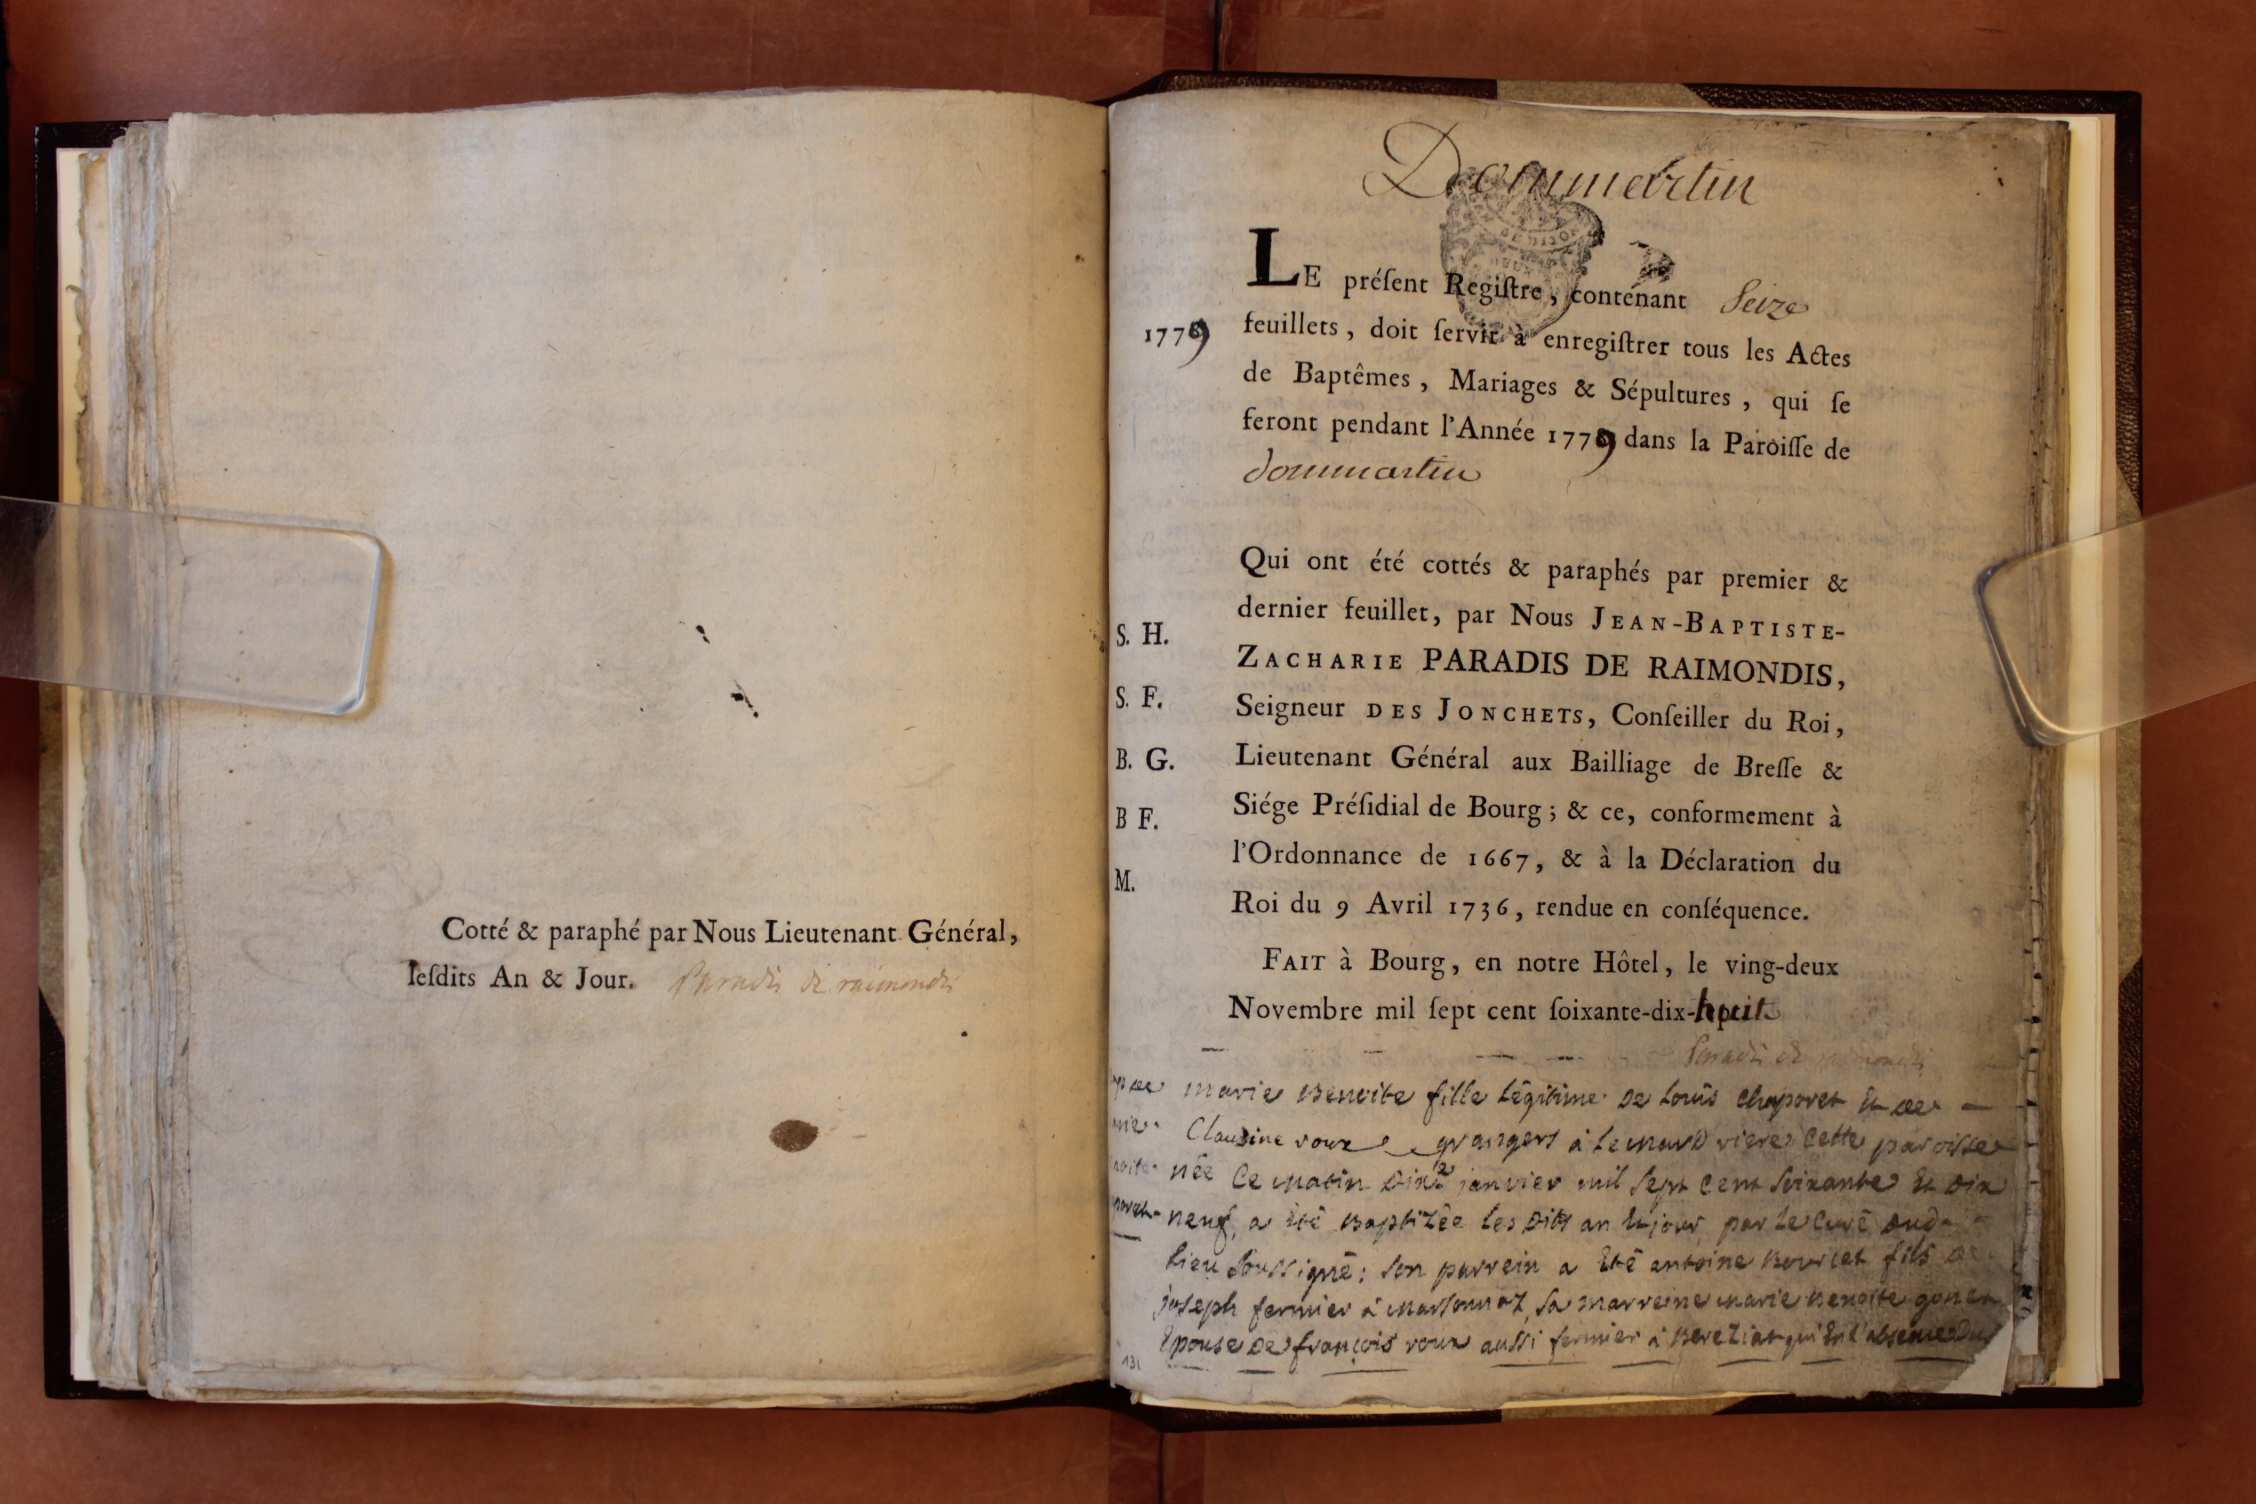 Cotté & paraphé par Nous Lieutenant Général,
lesdits An & Jour. Paradis de raimondis
Dommartin
LE préſent Regiſtre, contenant Seize
1779
feuillets, doit ſervir à enregiſtrer tous les Actes
de Baptêmes, Mariages & Sépultures, qui ſe
feront pendant l'Année 1779 dans la Paroiſſe de
dommartin
Qui ont été cottés & paraphés par premier &
dernier feuillet, par Nous JEAN-BAPTISTE-
S. H.
ZACHARIE PARADIS DE RAIMONDIS,
S. F.
Seigneur DES JONCHETS, Conſeiller du Roi,
B. G.
Lieutenant Général aux Bailliage de Breſſe &
B F.
Siége Préſidial de Bourg; & ce, conformement à
l'Ordonnance de 1667, & à la Déclaration du
M.
Roi du 9 Avril 1736, rendue en conſéquence.
FAIT à Bourg, en notre Hôtel, le ving-deux
Novembre mil ſept cent ſoixante-dix-huit
Paradis de raimondis
marie Benoite fille légitime de Louis chaporet et de
Claudine roux grangers à cette paroisse
née Ce matin janvier mil Sept Cent Soixante et dix
neuf, a été Baptizée les dits an et jour, par le Curé dud
lieu Soussigné: Son parrein a été antoine fils de
joseph fermier à marsonnaz, Sa marreine marie benoite
épouse de françois roux aussi fermier à Bereziat qui en l'absence du
131